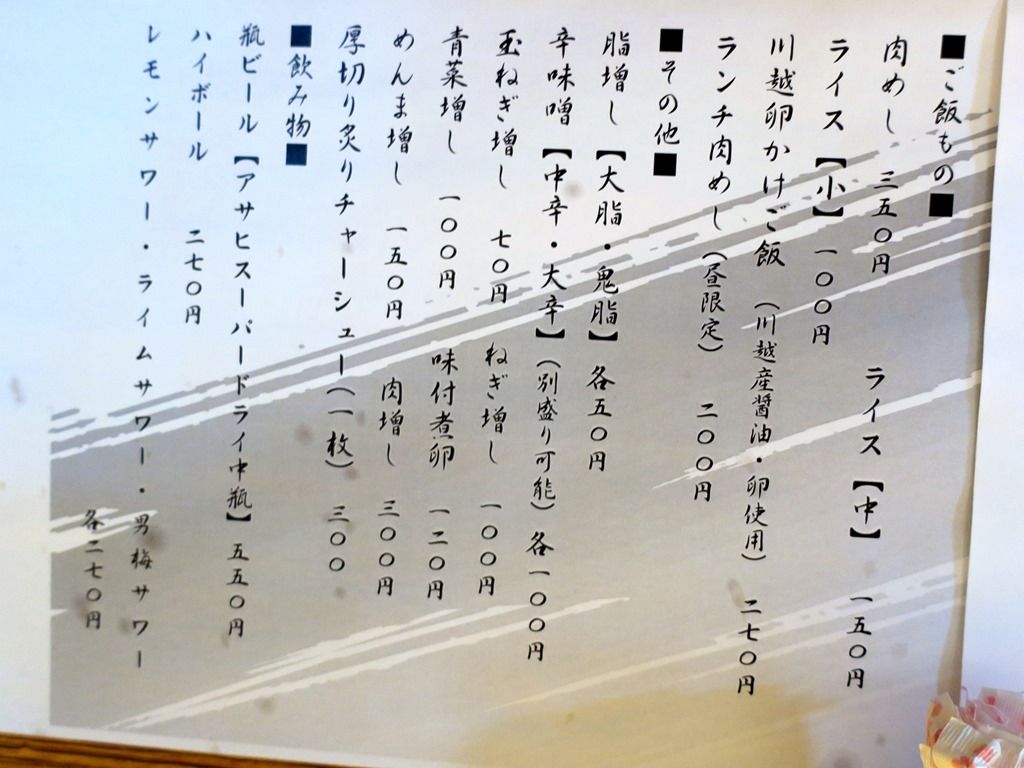 ■ご飯もの■
肉めし 三五〇円
ライス【小】 一〇〇円 ライス【中】 一五〇円
川越卵かけご飯 (川越産醤油・卵使用) 二七〇円
ランチ肉めし(昼限定) 二〇〇円
■その他■
脂増し【大脂・鬼脂】各五〇円
辛味噌【中辛・大辛】(別盛り可能)各一〇〇円
玉ねぎ増し 七〇円 ねぎ増し 一〇〇円
青菜増し 一〇〇円 味付煮卵 一二〇円
めんま増し 一五〇円 肉増し 三〇〇円
厚切り炙りチャーシュー(一枚) 三〇〇
■飲み物■
瓶ビール【アサヒスーパードライ中瓶】 五五〇円
ハイボール 二七〇円
レモンサワー・ライムサワー・男梅サワー
各二七〇円